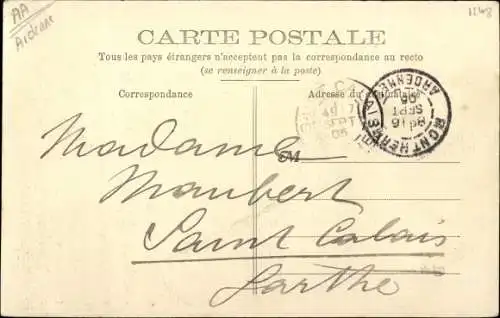 AA
Ardenne
1248
CARTE POSTALE
Tous les pays étrangers n'acceptent pas la correspondance au recto
(se renseigner à la poste)
Correspondance
Adresse du destinataire
MONTHERMÉ
ARDENNES
SEPT
05
SEPT
05
Madame
Maubert
Saint Calais
Sarthe